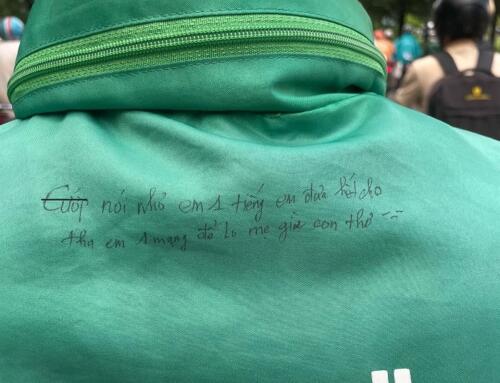 Cướp nói nhỏ em 1 tiếng em đưa hết cho
tha em 1 mạng để lo mẹ già con thơ